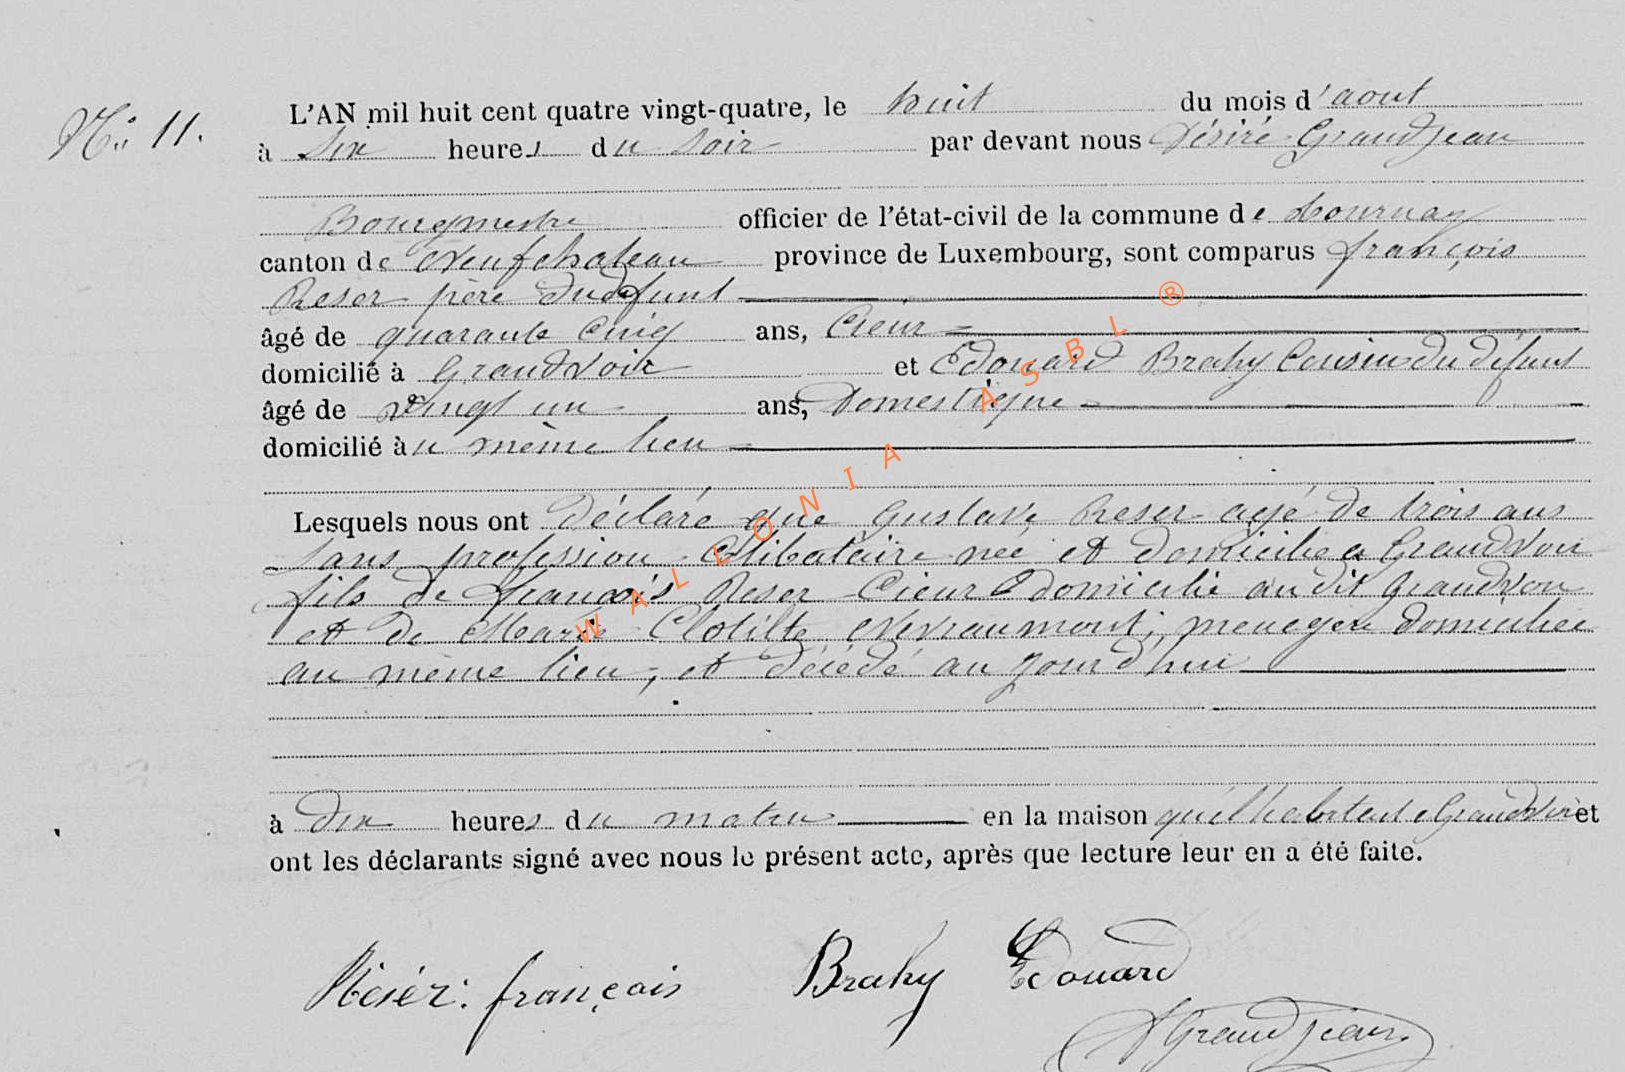 N° 11.
L'AN mil huit cent quatre vingt-quatre, le huit du mois d'aout
à Six heures du Soir par devant nous Désiré Grandjean
Bourgmestre officier de l'état-civil de la commune de tournay
canton de Neufchateau province de Luxembourg, sont comparus françois
Reser père du defunt
âgé de quarante Cinq ans, Cieur
domicilié à Grandvoir et Edouard Brahy Cousin du défunt
âgé de vingt un ans, Domestique
domicilié àu même lieu
Lesquels nous ont déclaré que Gustave Reser agé de trois ans
sans profession Célibataire née et domicilié a Grandvoir
fils de françois Reser Cieur domicilié au dit Grandvoir
et de Marie Clotilte Nevraumont, menagere domiciliée
au même lieu, et décédé au jourd'hui
à dix heures du matin en la maison qu'il habitait a Grandvoir et
ont les déclarants signé avec nous le présent acte, après que lecture leur en a été faite.
Résér. françois Brahy Edouard
D Grandjean
WALLONIA ASBL ®